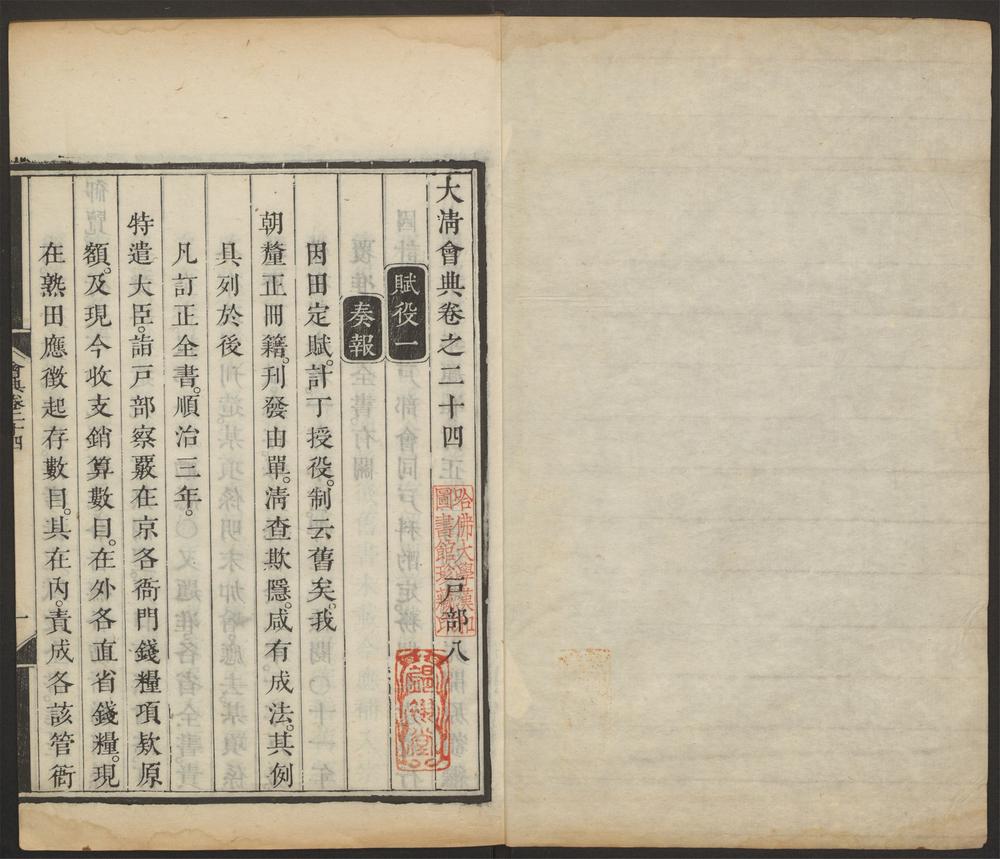 大淸會典卷之二十四　戸部八
賦役一
奏報
因田定賦。計丁授役。制云舊矣。我
朝釐正冊籍。刋發由單。淸查欺隱。咸有成法。其例
具列於後
凡訂正全書。順治三年。
特遣大臣。詣戸部察覈在京各衙門錢糧項欵原
額。及現今收支銷算數目。在外各直省錢糧。現
在熟田應徵起存數目。其在內。責成各該管衙
會典卷二十四
一
哈佛大學漢和
圖書館珍藏印